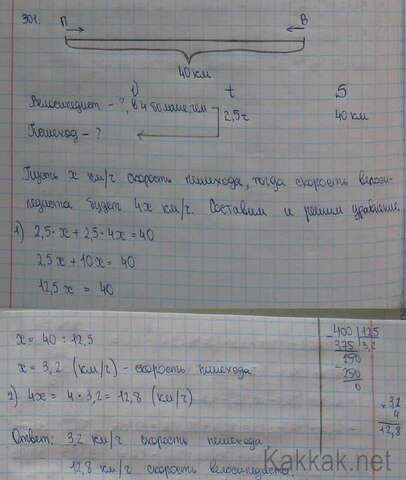 301. П В
40 км
v t S
Велосипедист - ?, в 4 больше, чем
2,5 ч 40 км
Пешеход - ?
Пусть x км/ч скорость пешехода, тогда скорость велоси-
педиста будет 4x км/ч. Составим и решим уравнение.
1) 2,5·x + 2,5·4x = 40
2,5x + 10x = 40
12,5x = 40
x = 40 : 12,5
x = 3,2 (км/ч) - скорость пешехода
2) 4x = 4·3,2 = 12,8 (км/ч)
Ответ: 3,2 км/ч скорость пешехода
12,8 км/ч скорость велосипедиста.
-400 125
375 3,2
-250
250
0
×3,2
4
12,8
Kakkak.net